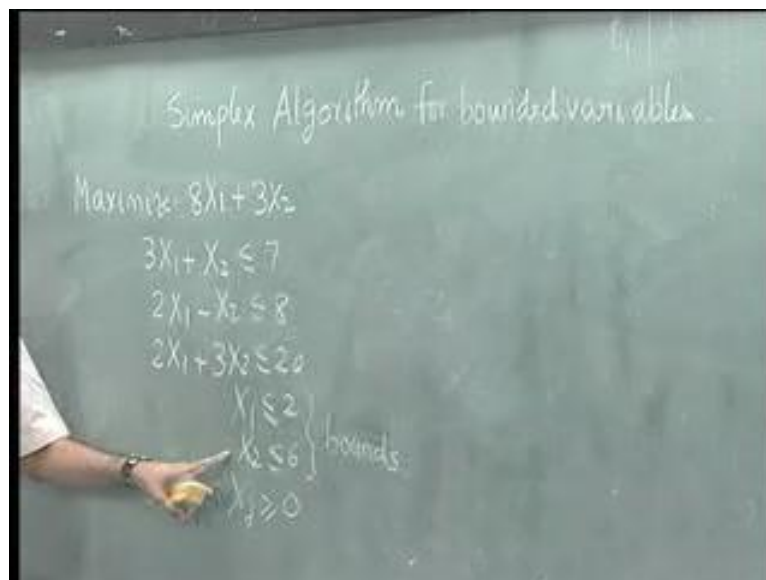 Simplex Algorithm for bounded variables.
Maximize 8X₁ + 3X₂
3X₁ + X₂ ≤ 7
2X₁ - X₂ ≤ 8
2X₁ + 3X₂ ≤ 20
X₁ ≤ 2
X₂ ≤ 6 } bounds
Xⱼ ≥ 0